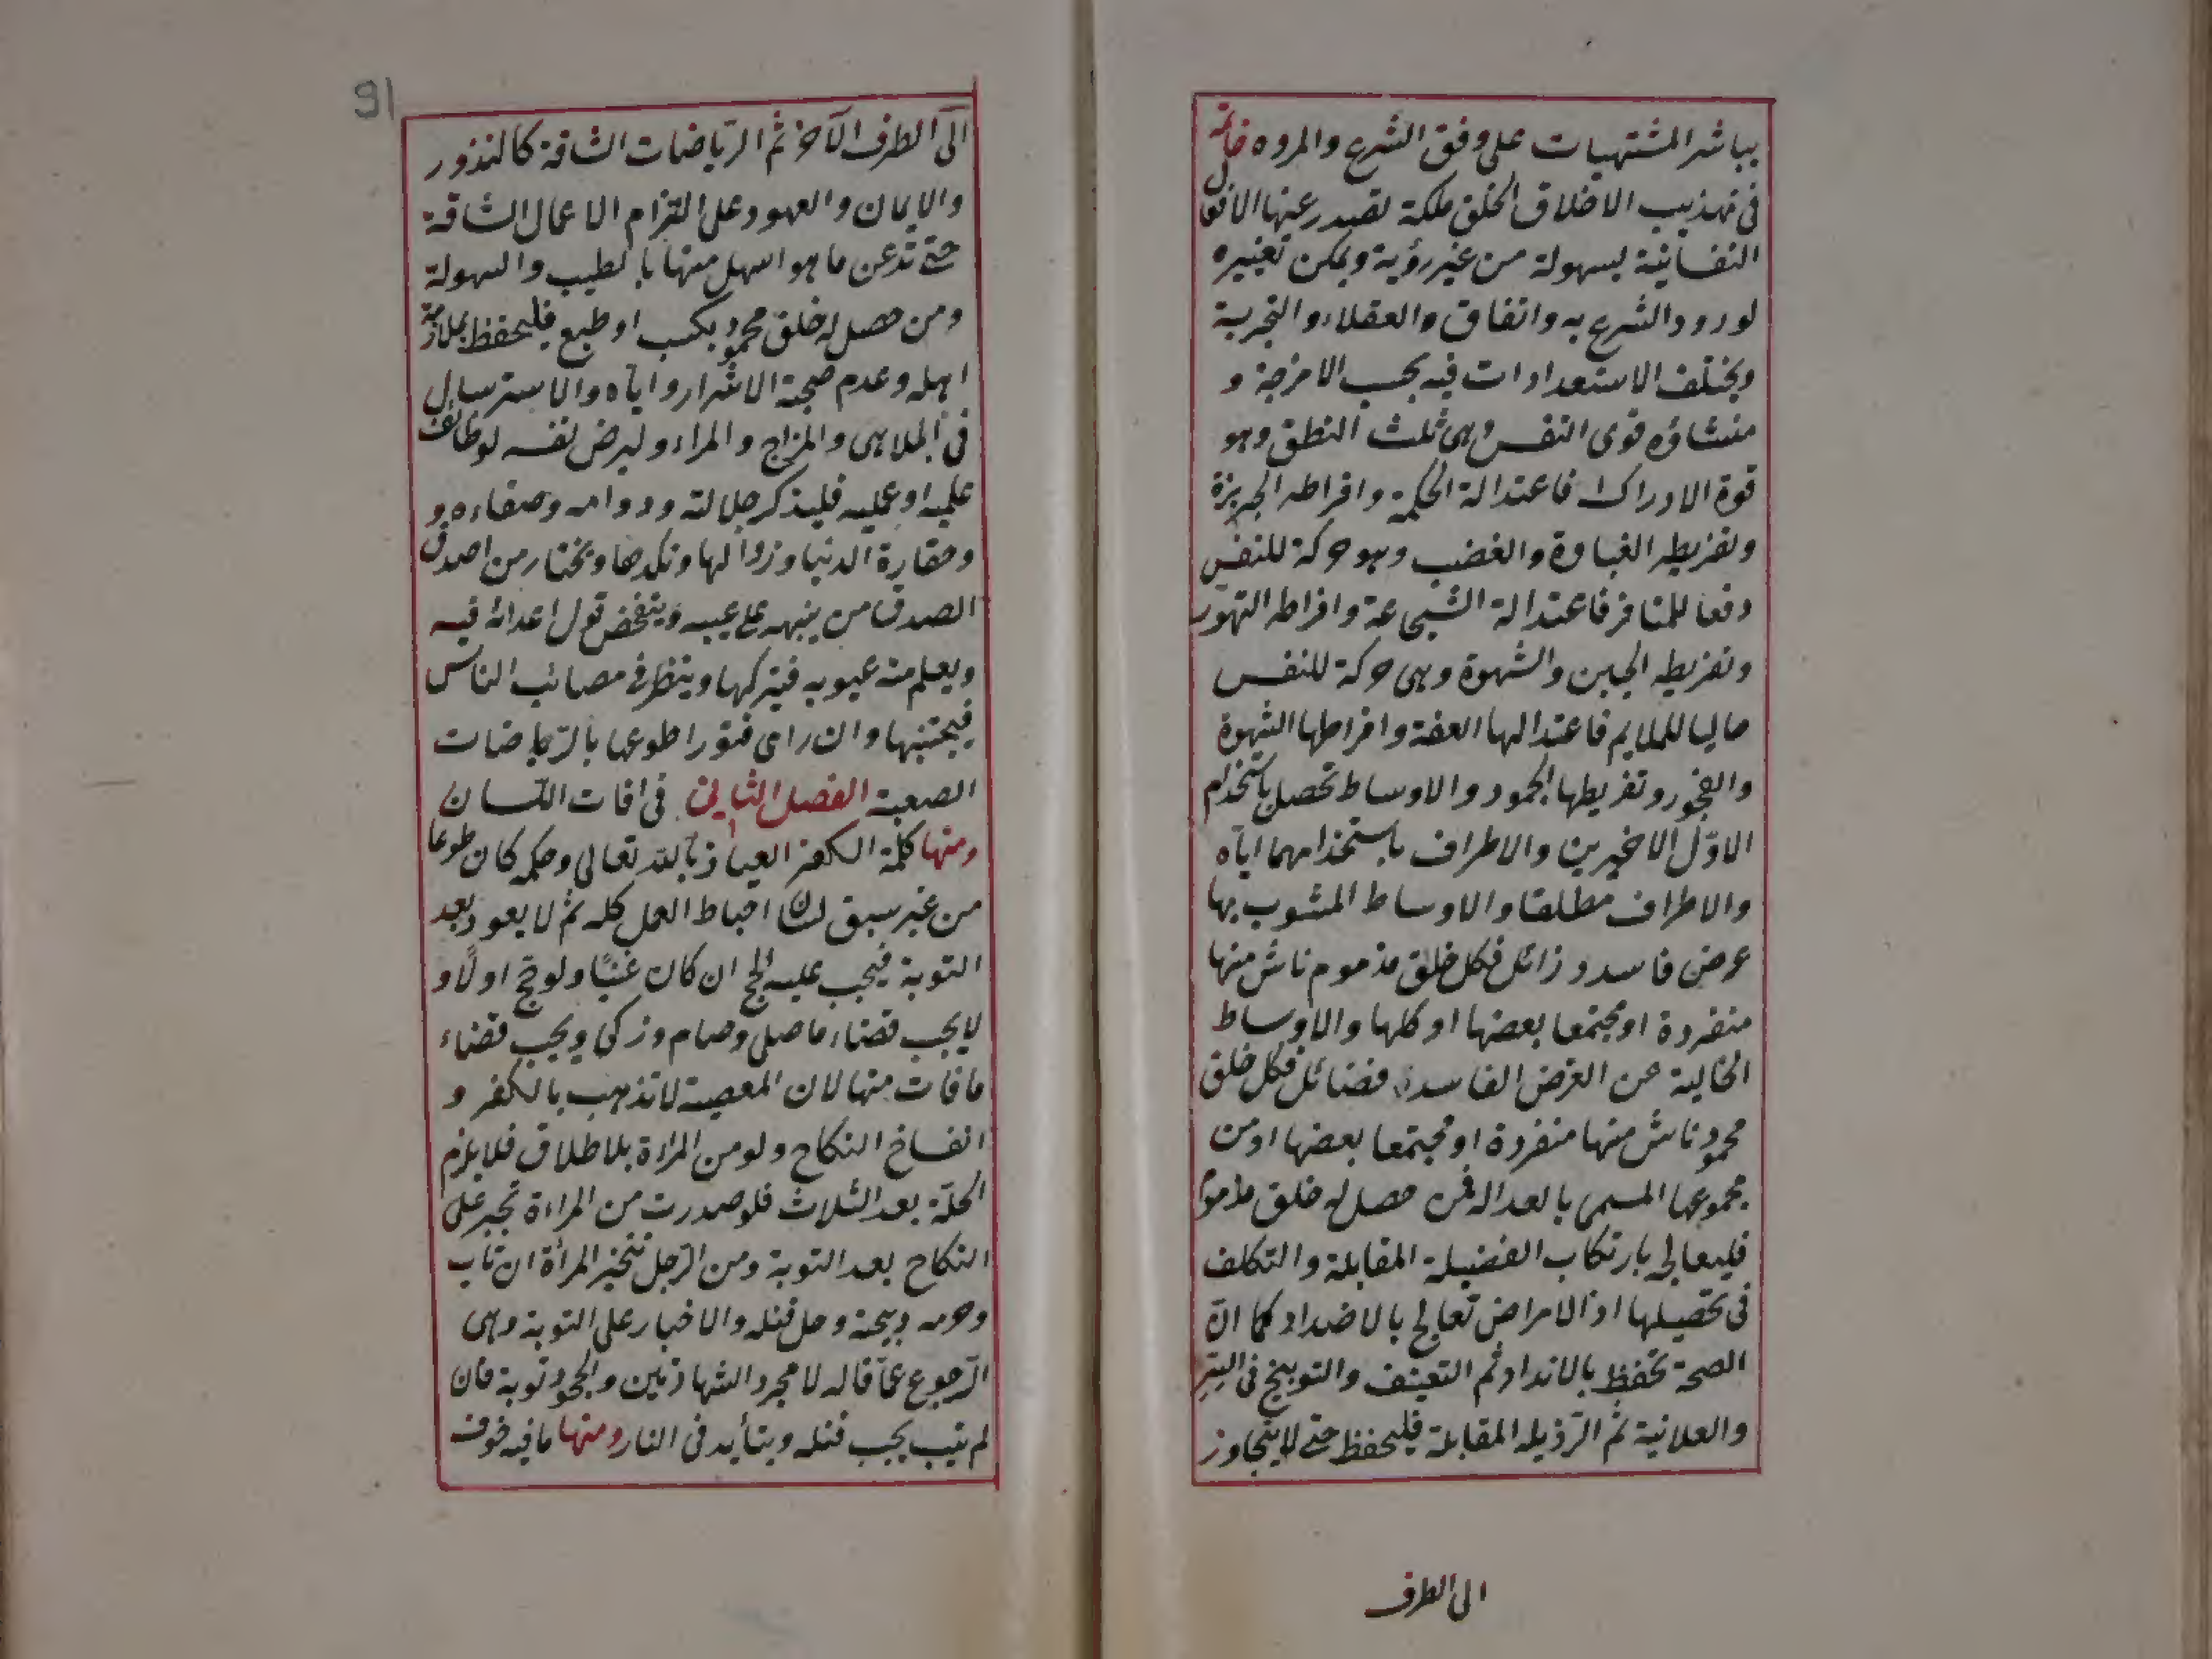 يباشر المشتهيات على وفق الشرع والمروه خاتمة
فى تهذيب الاخلاق الخلق ملكة تصدر عنها الافعال
النفسانية بسهولة من غير رؤية ويمكن تغييره
لورود الشرع به واتفاق والعقلاء والتجربة
ويختلف الاستعدادات فيه بحسب الامزجة و
منشاؤه قوى النفس وهى ثلث النطق وهو
قوة الادراك فاعتداله الحكمة وافراطه الجربزة
وتفريطه الغباوة والغضب وهو حركة للنفس
دفعا للمنافر فاعتداله الشجاعة وافراطه التهور
وتفريطه الجبن والشهوة وهى حركة للنفس
جالبا للملايم فاعتدالها العفة وافراطها الشهوة
والفجور وتفريطها الجمود والاوساط تحصل باستخدام
الاوّل الاخيرين والاطراف باستخدامهما اياه
والاطراف مطلقا والاوساط المشوب بها
عرض فاسد وزائل فكل خلق مذموم ناش منها
منفردة او مجتمعا بعضها او كلها والاوساط
الخالية عن الغرض الفاسدة فضائل فكل خلق
محمود ناش منها منفردة او مجتمعا بعضها او من
مجموعها المسمى بالعداله فمن حصل له خلق مذموم
فليعالجه بارتكاب الفضيلة المقابلة والتكلف
فى تحصيلها اذ الامراض تعالج بالاضداد كما انّ
الصحة تحفظ بالانداد ثم التعنيف والتوبيخ فى السّر
والعلانية ثم الرّذيله المقابلة فليحفظ حتى لا يتجاوز
الى الطرف
91
الى الطرف الآخر ثم الرّياضات الشاقة كالنذور
والايمان والعهود على التزام الاعمال الشاقة
حتى تذعن ما هو اسهل منها بالطيب والسهولة
ومن حصل له خلق محمود بكسب او طبع فليحفظ بملازمة
اهله وعدم صحبة الاشرار واياه والاسترسال
فى الملاهى والمزاح والمراء وليرض نفسه لوظائف
علمية او عملية فليذكر جلالته ودوامه وصفاءه و
وحقارة الدنيا وزوالها ونكدها ويختار من اصدق
الصدق من ينبهه على عيبه ويتفحص قول اعدائه فيه
ويعلم منه عيوبه فيتركها وينظر فى مصائب الناس
فيجتنبها وان راى فتورا طوعها بالرّياضات
الصعبة الفصل الثانى فى افات اللسان
ومنها كلمة الكفر العياذ بالله تعالى وحكمه كان طوعا
من غير سبق لسان احباط العمل كله ثم لا يعود بعد
التوبة فيجب عليه الحج ان كان غنيًا ولو حج اولًا و
لا يجب قضاء ما صلى وصام وزكى ويجب قضاء
ما فات منها لان المعصية لا تذهب بالكفر و
انفساخ النكاح ولو من المراة بلا طلاق فلا يلزم
الحلّة بعد الثلاث فلو صدرت من المراءة تجبر على
النكاح بعد التوبة ومن الرّجل تتخير المرأة ان تاب
وحرمه ذبيحته وحل قتله والاخبار على التوبة وهى
الرّجوع عمّا قاله لا مجرد الشهادتين والجحود توبة فان
لم يتب يجب قتله ويتأبد فى النار ومنها ما فيه خوف